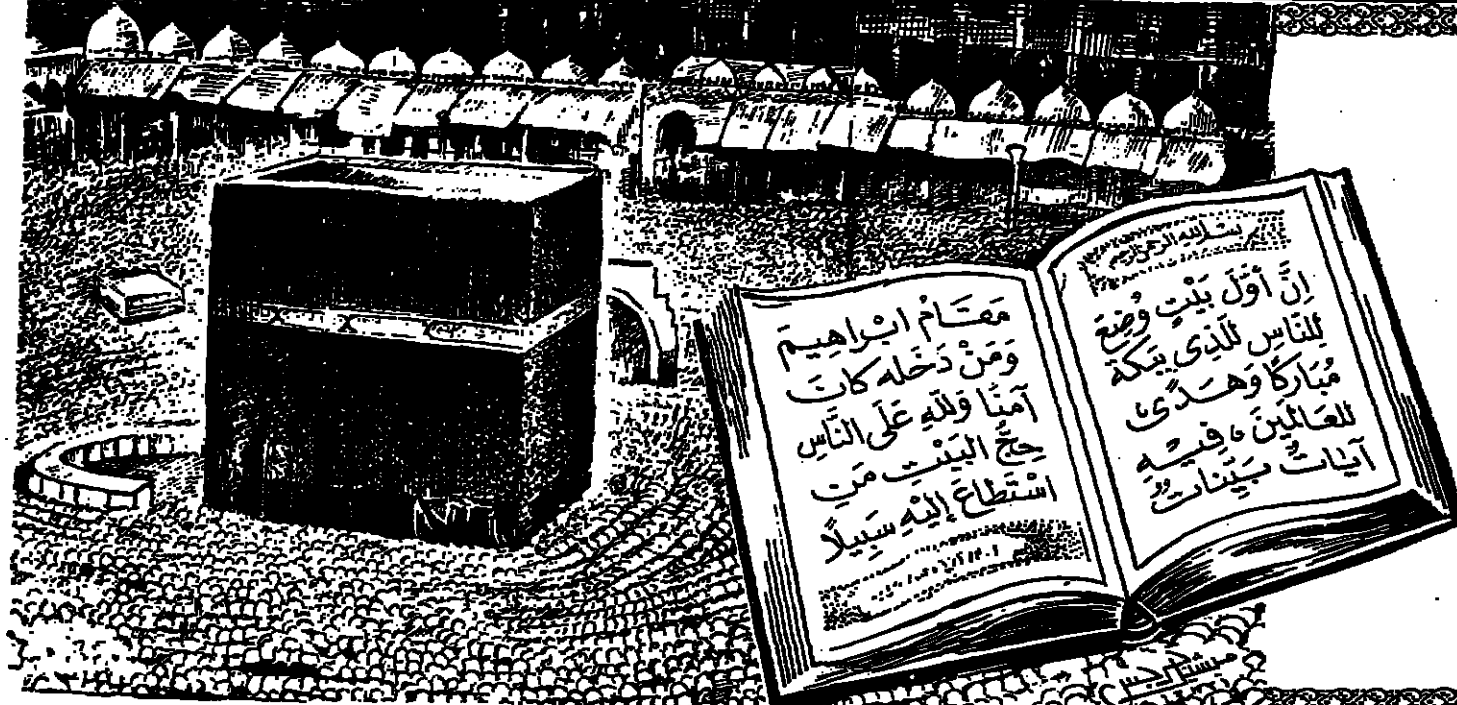 بسم الله الرحمن الرحيم
اِنَّ أَوَّلَ بَيْتٍ وُضِعَ
لِلنَّاسِ لَلَّذِى بِبَكَّةَ
مُبَارَكًا وَهُدًى
لِلْعَالَمِيْنَ ، فِيْهِ
آيَاتٌ بَيِّنَاتٌ
مَقَامُ ابْرَاهِيمَ
وَمَنْ دَخَلَهُ كَانَ
آمِنًا وَلِلّهِ عَلَى النَّاسِ
حِجُّ البَيْتِ مَنِ
اسْتَطَاعَ إِلَيْهِ سَبِيلًا